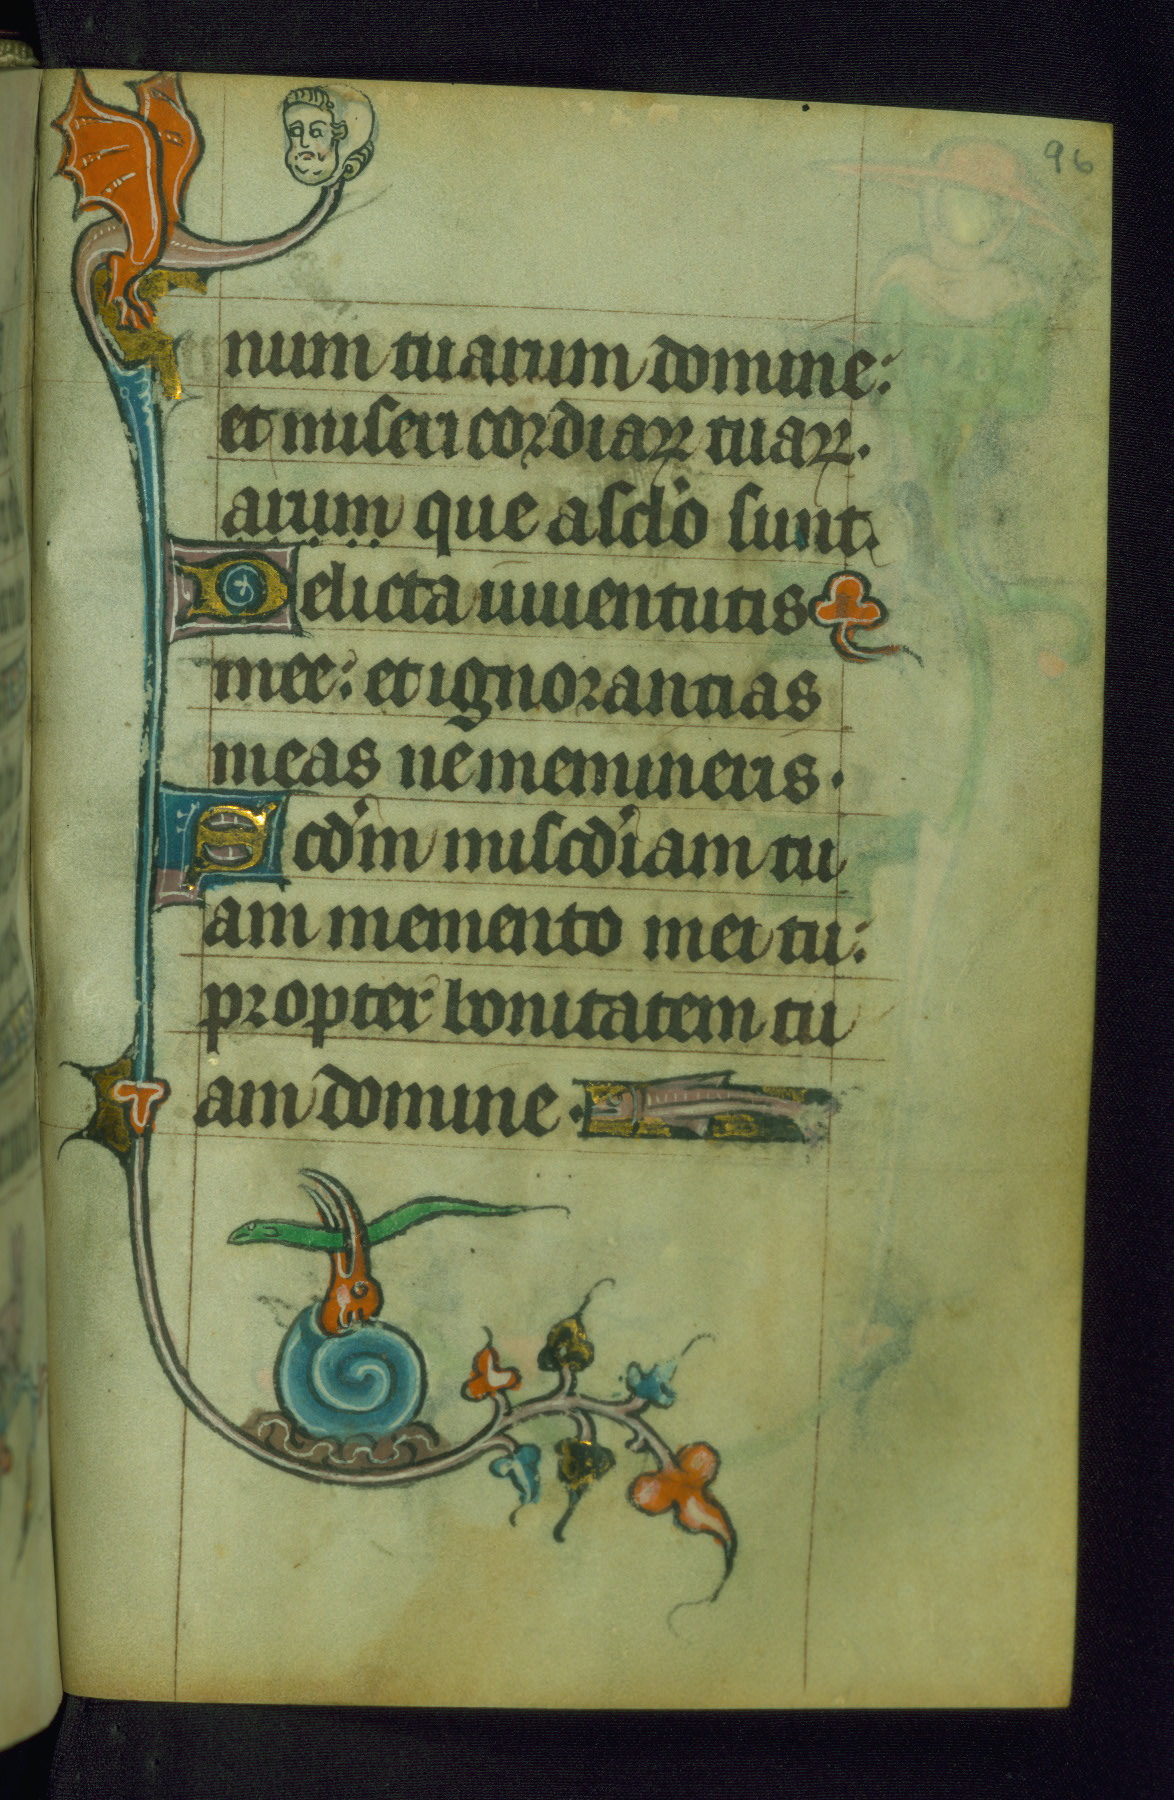 96
num tuarum domine:
et misericordiaꝝ tuaꝝ.
arum que a sclo sunt.
Delicta iuuentutis
mee: et ignorantias
meas ne memineris.
Scdm miscdiam tu
am memento mei tu:
propter bonitatem tu
am domine.